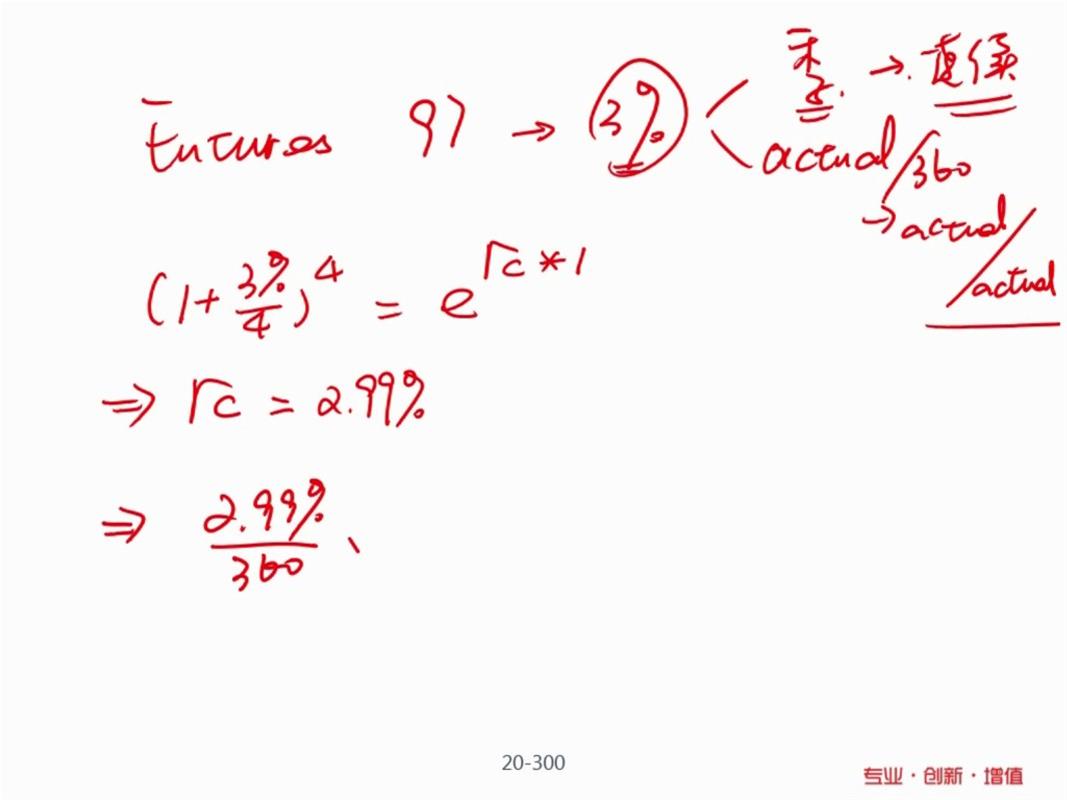 Futures 97 → 3% < 季. → 连续
actual/360
→ actual/actual
(1+3%/4)^4 = e^rc*1
⇒ rc = 2.99%
⇒ 2.99%/360
20-300
专业·创新·增值